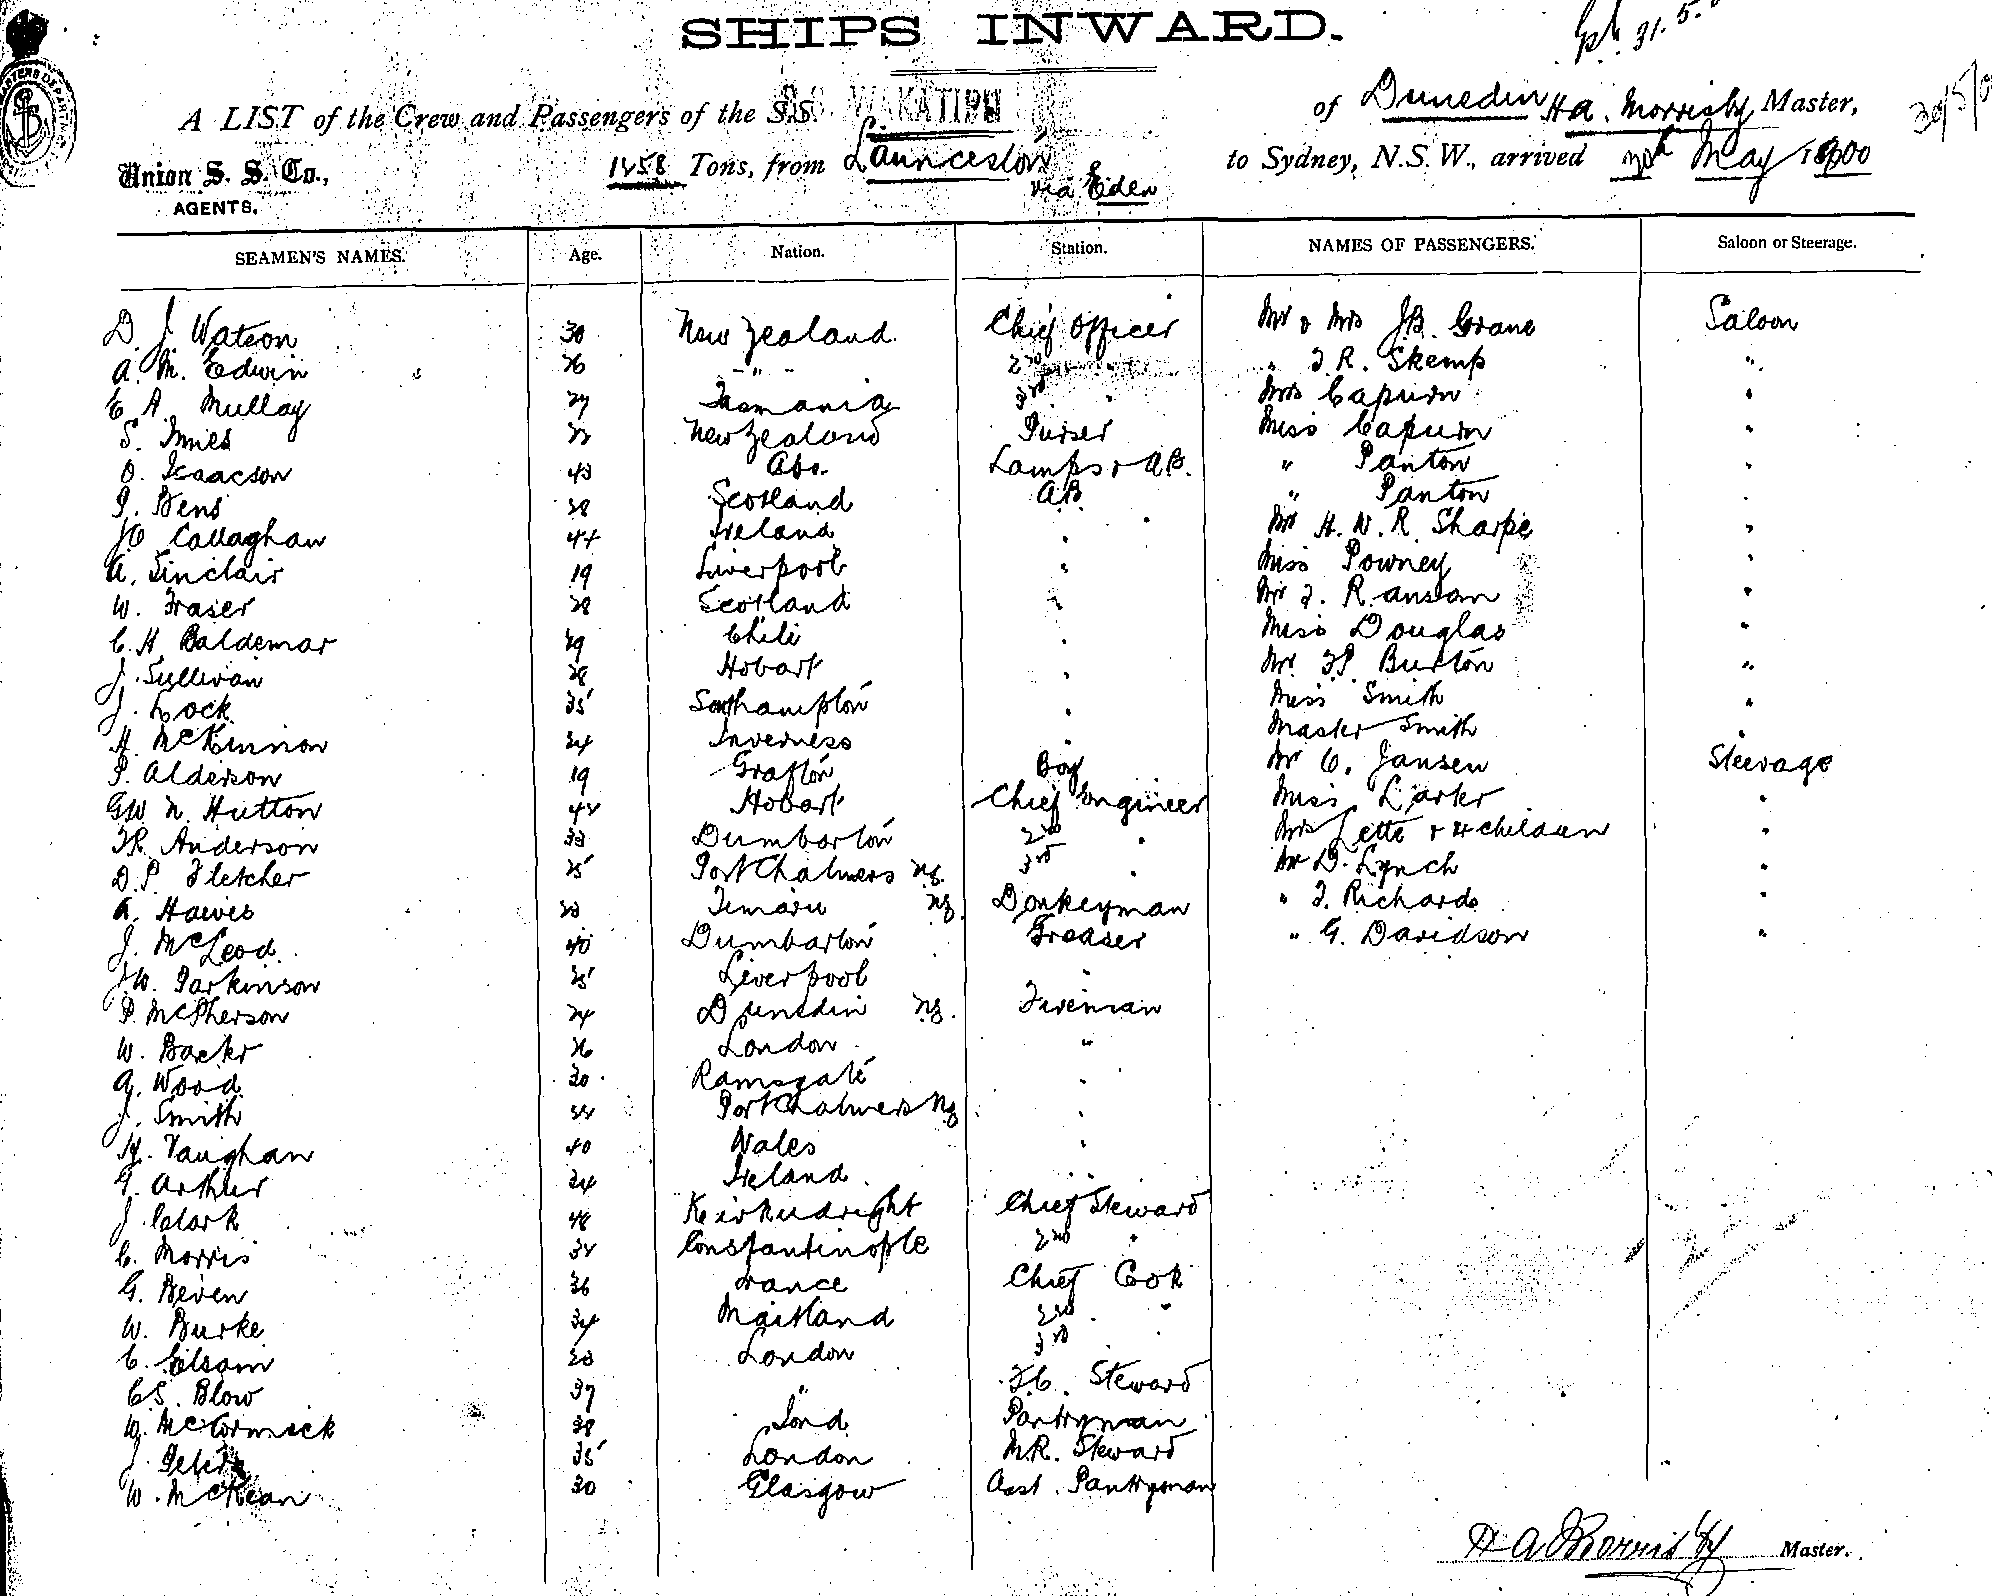 SHIPS INWARD.
31.5.
30/5/0
A LIST of the Crew and Passengers of the S.S. WAKATIPU of Dunedin HA. Morrisby Master,
Union S. S. Co.,
AGENTS.
1458 Tons, from Launceston to Sydney, N.S.W., arrived May 1900
via Eden
SEAMEN'S NAMES. Age. Nation. Station. NAMES OF PASSENGERS. Saloon or Steerage.
D. J Watson 30 New Zealand Chief Officer Mr & Mrs J.B. Grano Saloon
A. M. Edwin 26 - " - 2nd " " J. R. Skemp "
E A. Mullay 27 Tasmania 3rd " Mrs Capurn "
S. Innes New Zealand Purser Miss Capurn "
O. Isaacson 43 Lamps & AB. " Panton "
P. Bens 38 Scotland AB " Panton "
Callaghan 44 Ireland " Mr H. W. R. Sharpe "
A. Sinclair 19 Liverpool " Miss Powney "
W. Fraser 28 Scotland " Mr J. Ransom "
C. H. Baldemar 29 Chili " Miss Douglas "
J. Sullivan 28 Hobart " Mr Burton "
J. Lock 35 Southampton " Miss Smith "
H. McKinnon 24 Inverness " Master Smith
P. Alderson 19 Grafton Boy Mr C. Jansen Steerage
GW N. Hutton Hobart Chief Engineer Miss Larter "
Anderson 33 Dumbarton 2nd " Mrs Lette & 4 children "
D. P. Fletcher 25 Port Chalmers NZ 3rd " Mr D. Lynch "
A. Hawes Timaru NZ Donkeyman " J. Richards "
J. McLeod 40 Dumbarton Greaser " G. Davidson "
JW. Parkinson 25 Liverpool "
P. McPherson 24 Dunedin NZ. Fireman
W. 26 London "
G. Wood 30 Ramsgate "
J. Smith Port Chalmers NZ "
H. Vaughan 40 Wales "
G. Arthur 24 Ireland "
J. Clark 48 Keirkudright Chief Steward
C. Morris Constantinople 2nd "
G. Beven 36 France Chief Cook
W. Burke 34 Maitland 2nd "
C. Elsom London 3rd "
CS. Blow 37 " F.C. Steward
W. McCormick 38 Lond Pantryman
J. Peters 35 London M.R. Steward
W. McKean 30 Glasgow Asst. Pantryman
H A Morrisby Master.